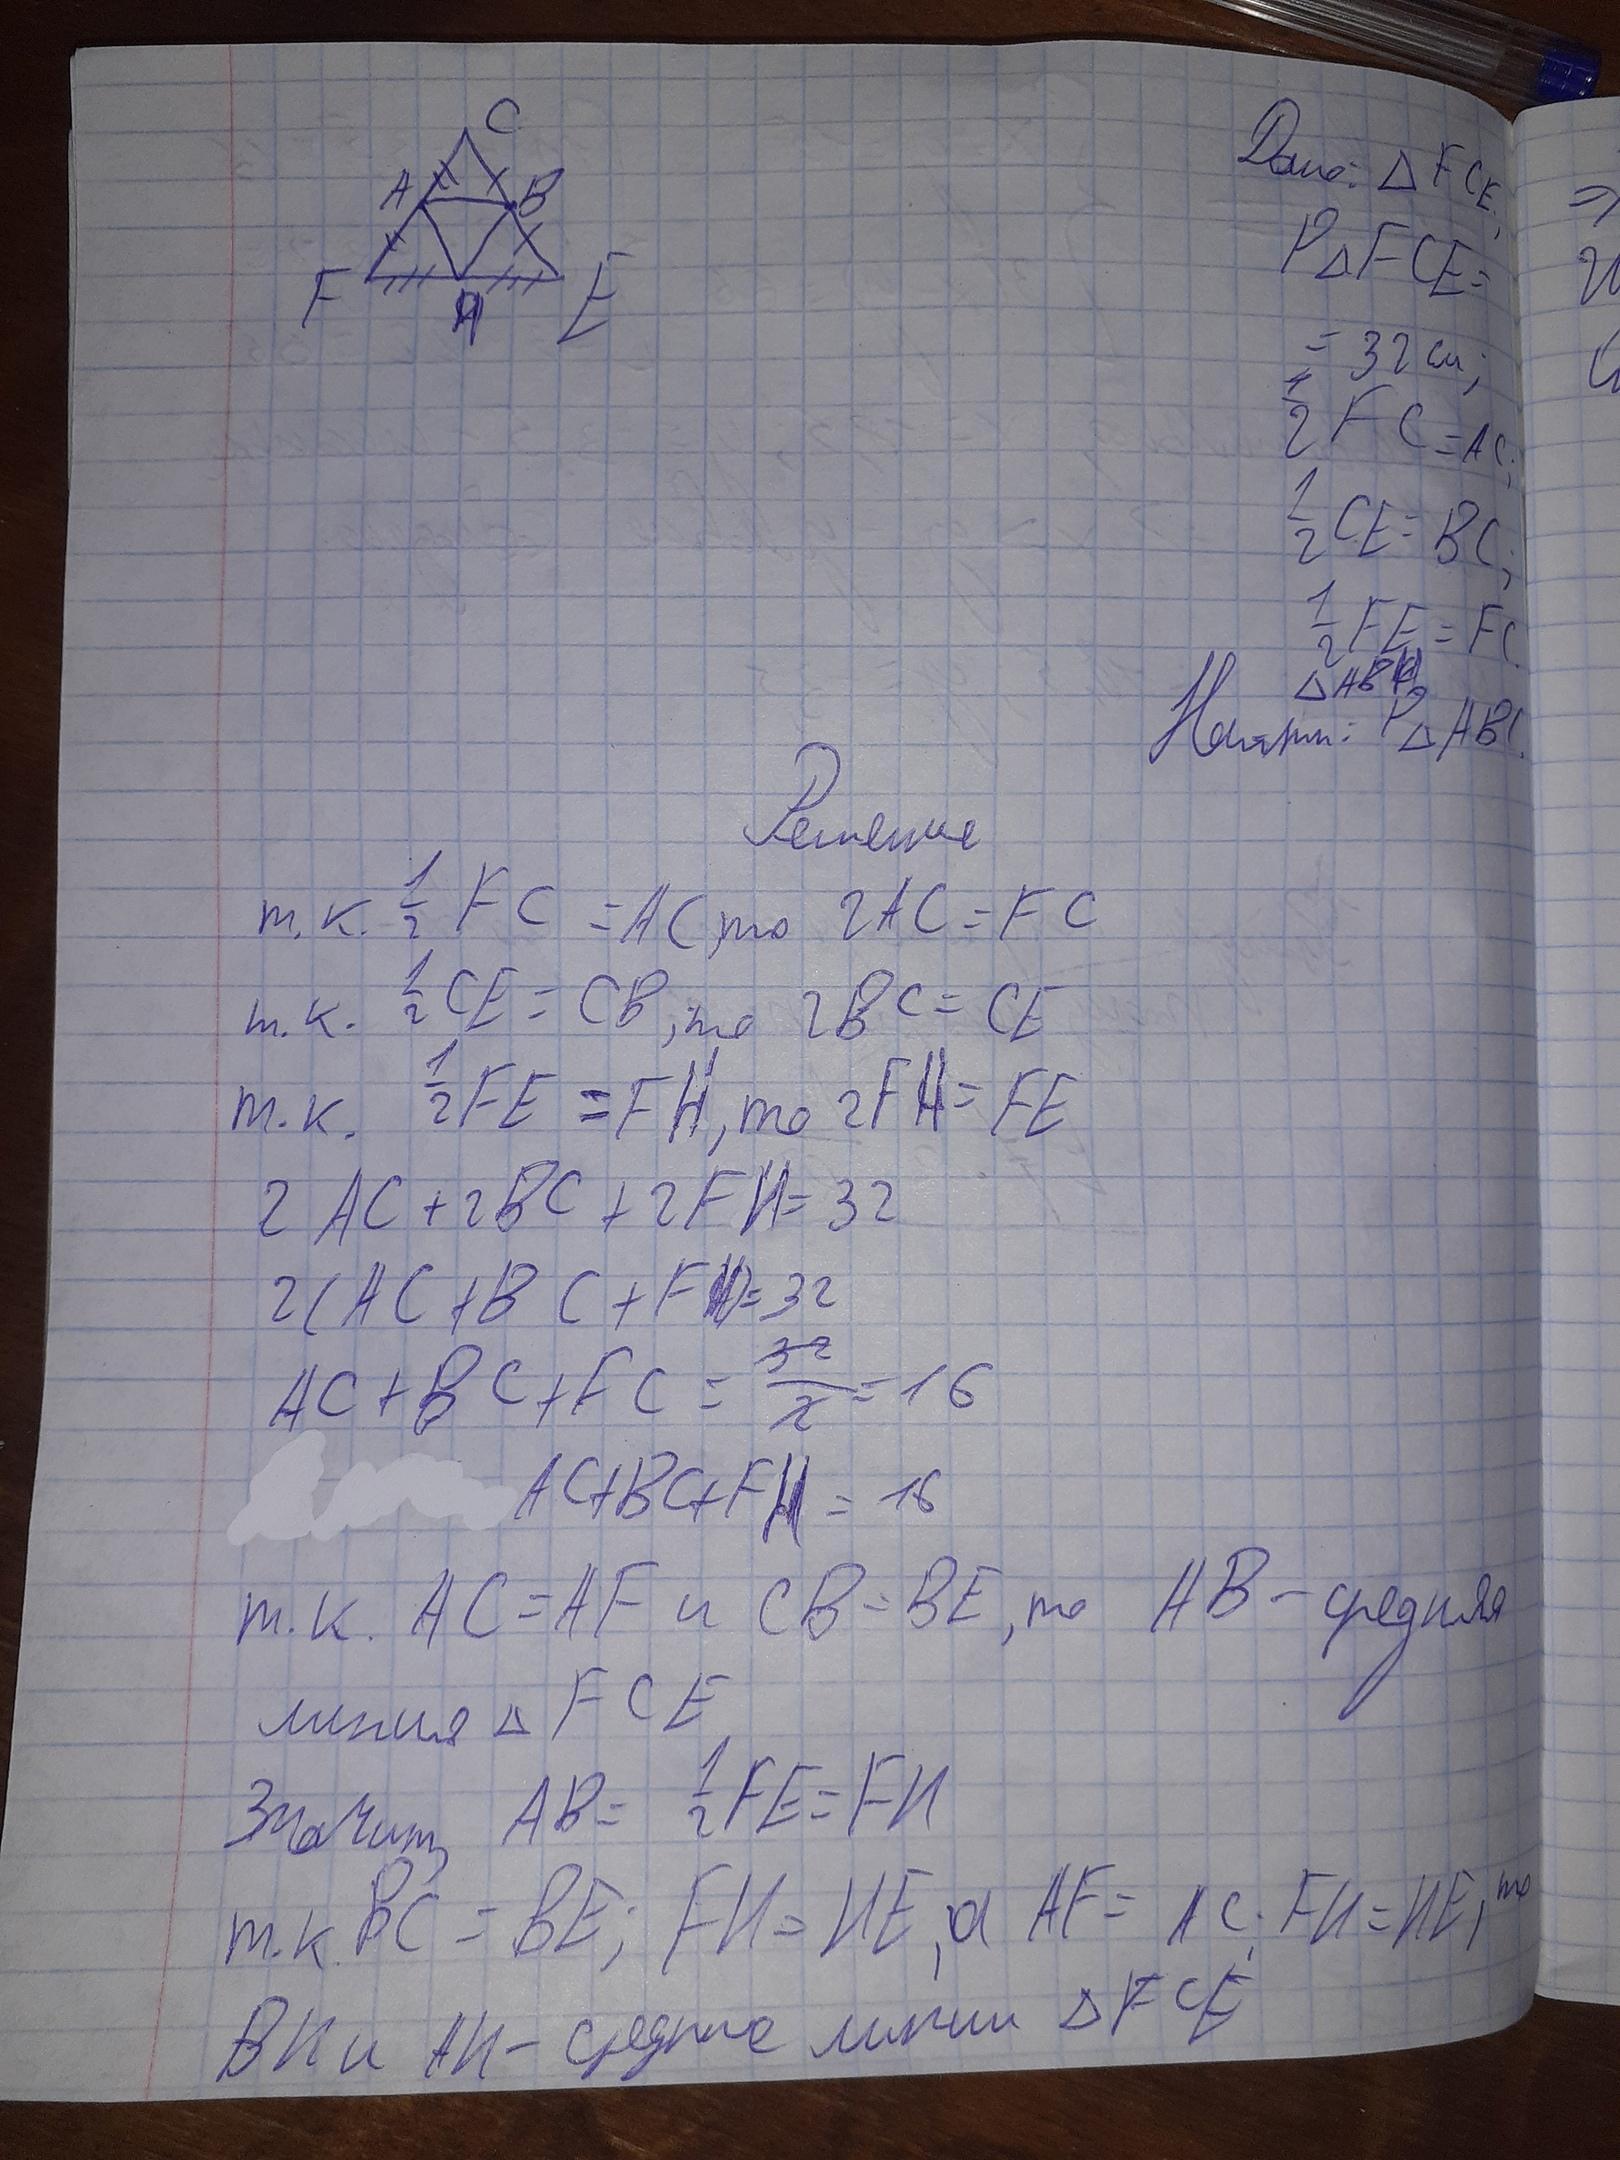 C
A B
F H E
Дано: △FCE,
P△FCE=
= 32 см;
1/2 FC = AC;
1/2 CE = BC;
1/2 FE = FC.
△ABH
Найти: P△ABC.
Решение
т.к. 1/2 FC = AC, то 2AC = FC
т.к. 1/2 CE = CB, то 2BC = CE
т.к. 1/2 FE = FH, то 2FH = FE
2AC + 2BC + 2FH = 32
2(AC + BC + FH) = 32
AC + BC + FC = 32/2 = 16
AC + BC + FH = 16
т.к. AC = AF и CB = BE, то AB – средняя
линия △FCE
Значит, AB = 1/2 FE = FH
т.к. BC = BE; FH = HE, а AF = AC; FH = HE, то
BH и AH – средние линии △FCE